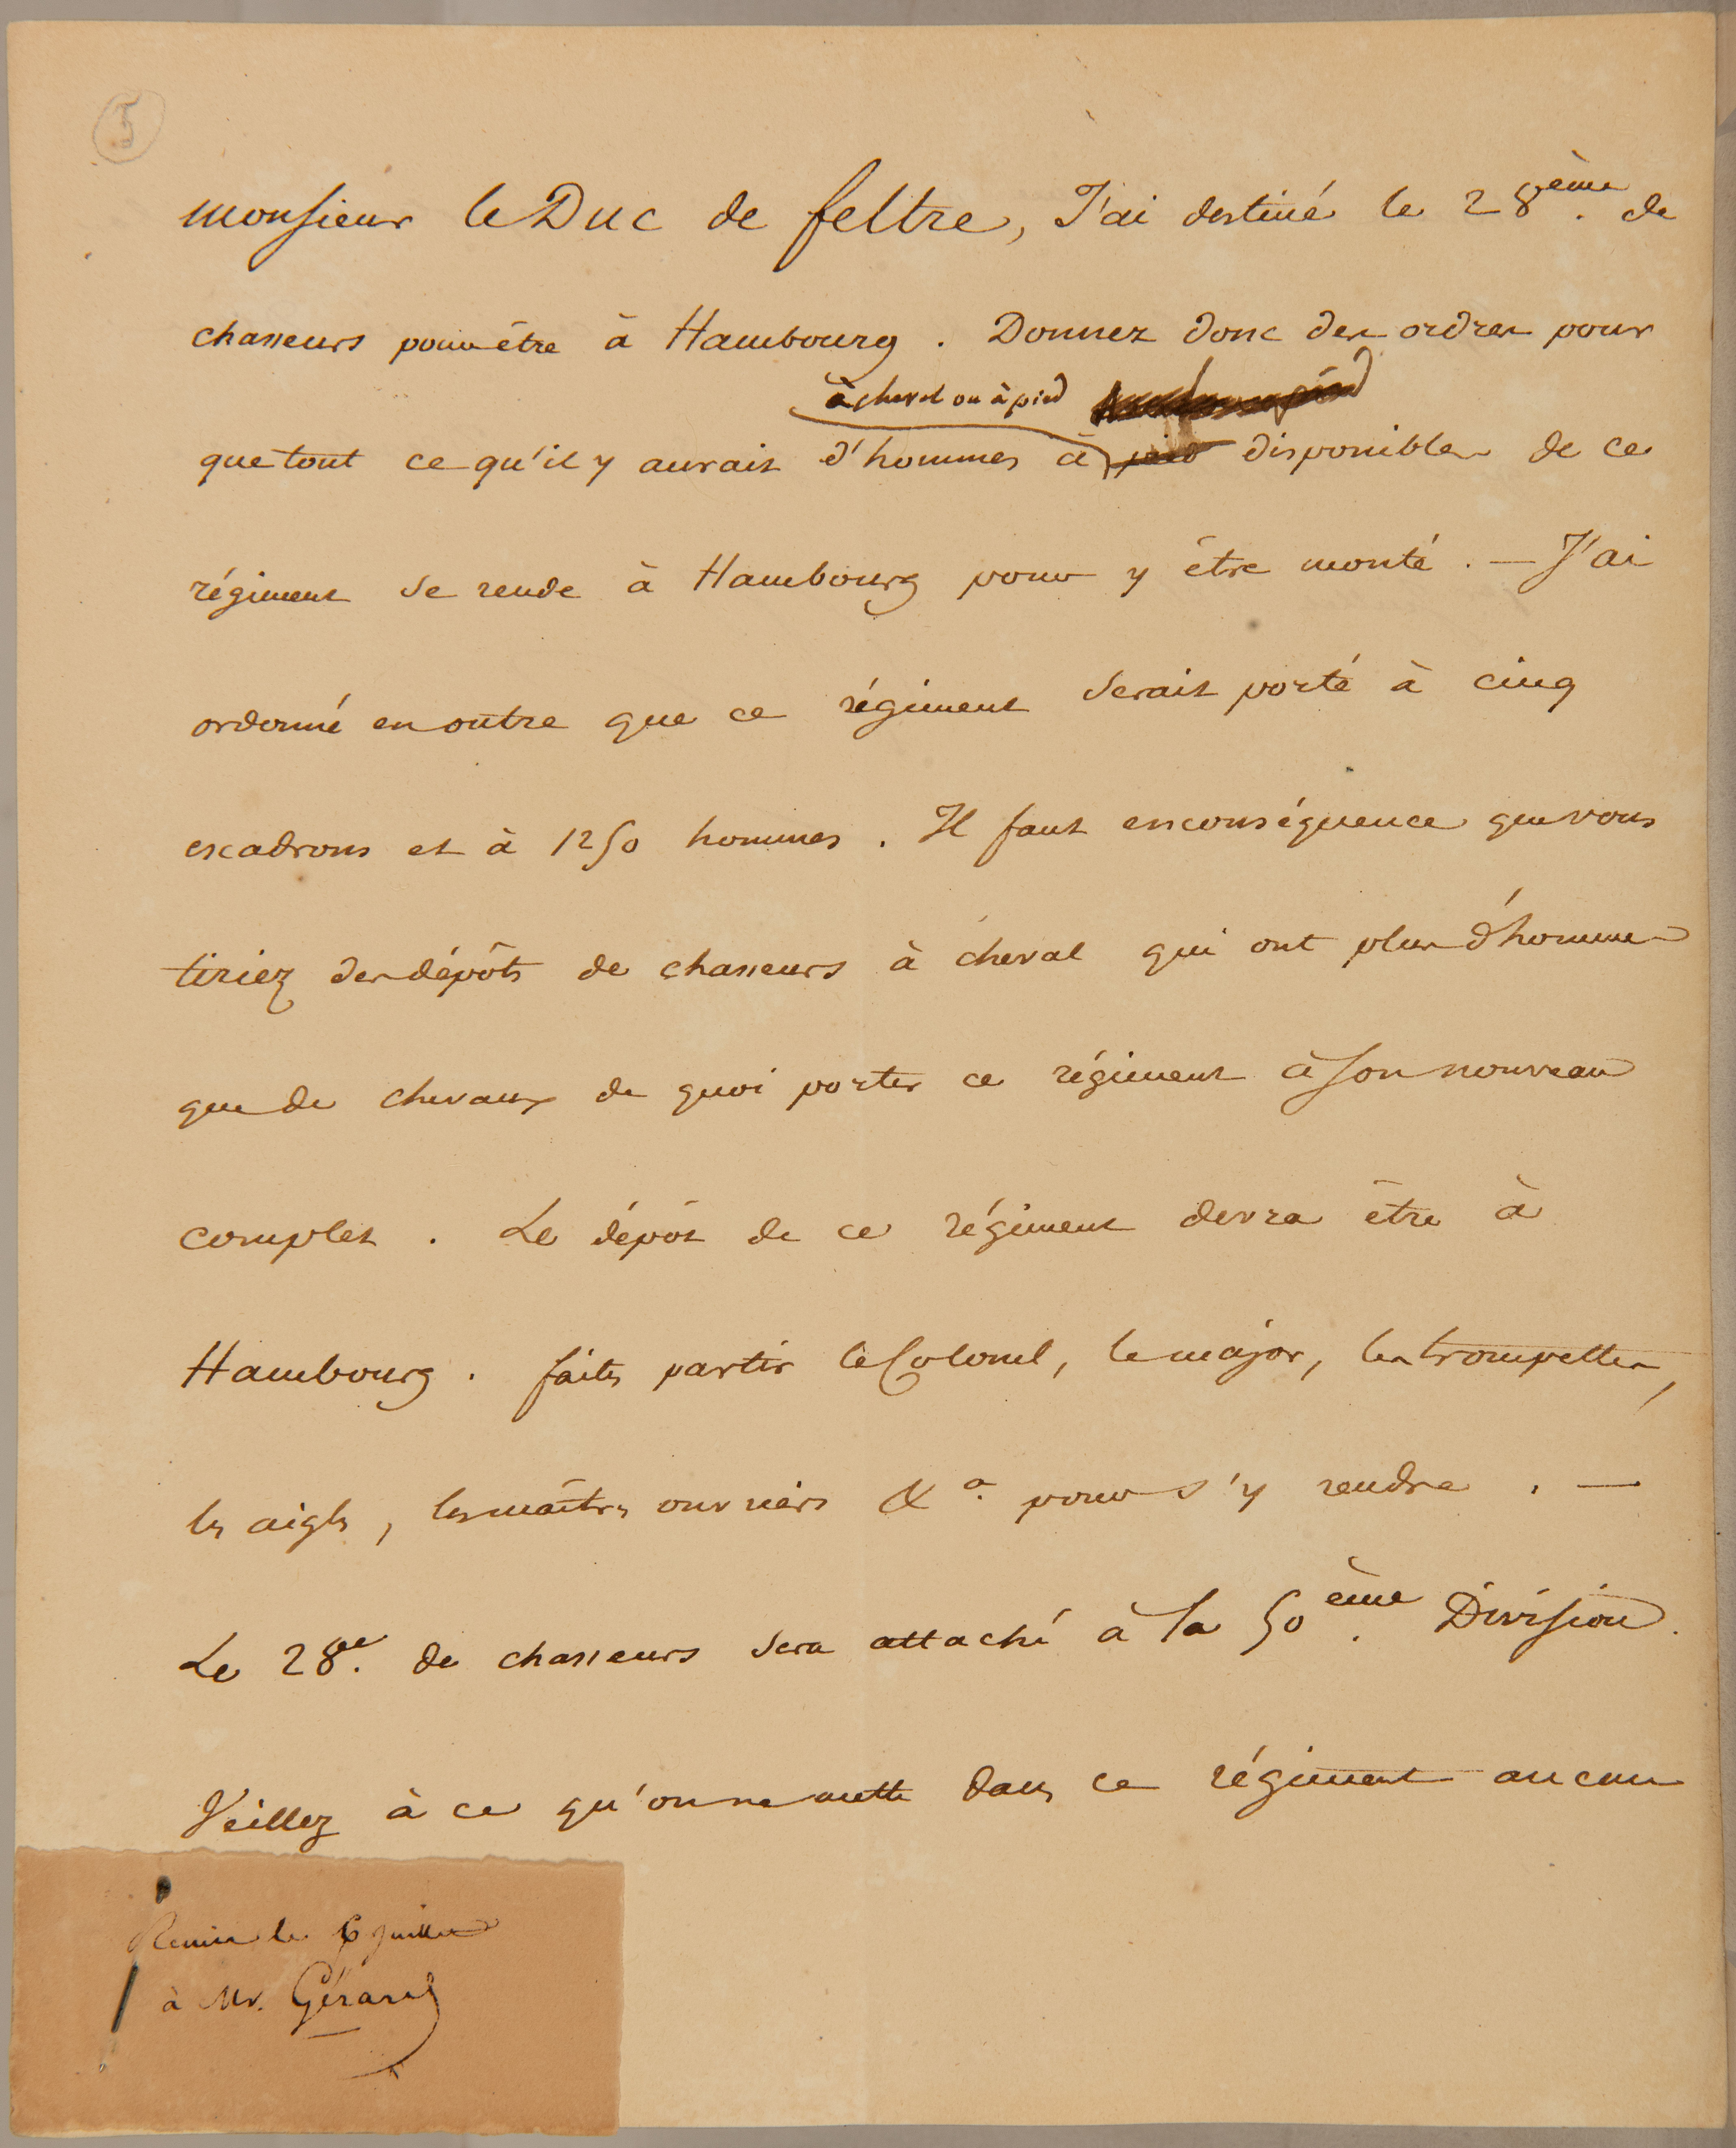 5
monsieur le Duc de feltre, J'ai destiné le 28ème. de
chasseurs pour être à Hambourg. Donnez donc des ordres pour
à cheval ou à pied
que tout ce qu'il y aurait d'hommes à pied disponibles de ce
régiment se rende à Hambourg pour y être monté. — J'ai
ordonné en outre que ce régiment serait porté à cinq
escadrons et à 1250 hommes. Il faut en conséquence que vous
tiriez des dépôts de chasseurs à cheval qui ont plus d'hommes
que de chevaux de quoi porter ce régiment à son nouveau
complet. Le dépôt de ce régiment devra être à
Hambourg. faites partir le Colonel, le major, les trompettes,
les aigles, les maîtres ouvriers &a. pour s'y rendre. —
Le 28e. de chasseurs sera attaché à la 50ème. Division.
Veillez à ce qu'on ne mette dans ce régiment aucun
Remis le 6 Juillet
à Mr. Gérard